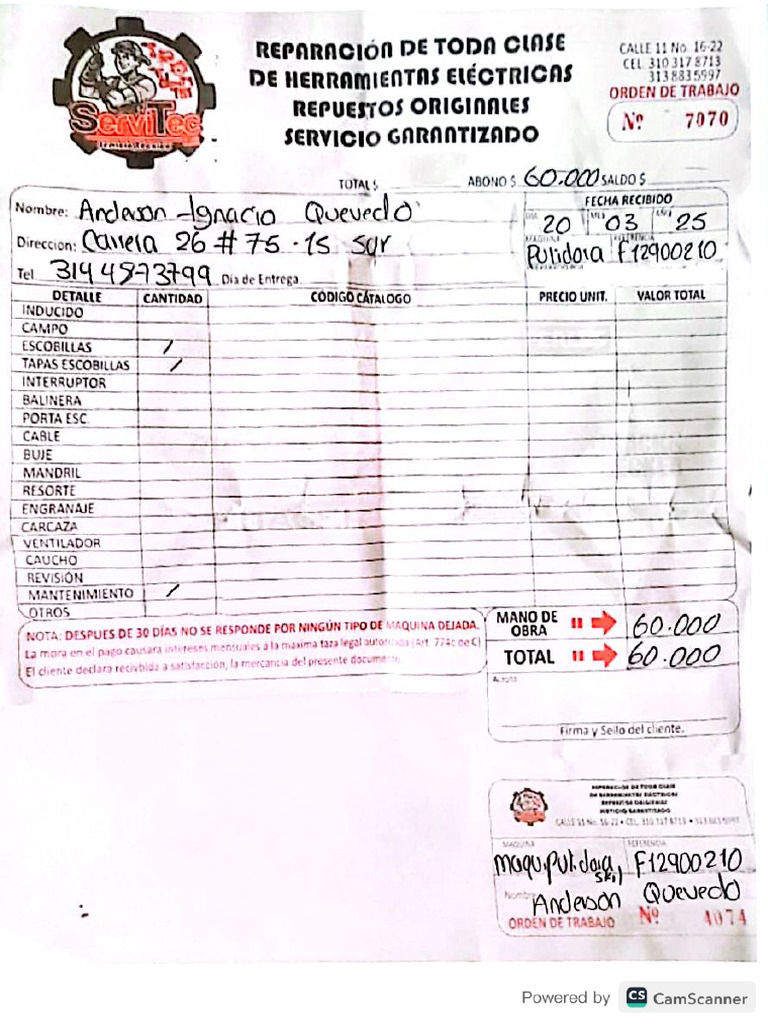 ServiTec
Servicio Técnico
REPARACIÓN DE TODA CLASE
DE HERRAMIENTAS ELÉCTRICAS
REPUESTOS ORIGINALES
SERVICIO GARANTIZADO
CALLE 11 No. 16-22
CEL. 310 317 8713
313 883 5997
ORDEN DE TRABAJO
Nº 7070
TOTAL $ ABONO $ 60.000 SALDO $
Nombre: Anderson Ignacio Quevedo
FECHA RECIBIDO
20 03 25
Direccion: Carrera 26 # 75-15 sur
Pulidora F12900210
Tel 3144573799 Día de Entrega
DETALLE CANTIDAD CÓDIGO CÁTALOGO PRECIO UNIT. VALOR TOTAL
INDUCIDO
CAMPO
ESCOBILLAS /
TAPAS ESCOBILLAS /
INTERRUPTOR
BALINERA
PORTA ESC.
CABLE
BUJE
MANDRIL
RESORTE
ENGRANAJE
CARCAZA
VENTILADOR
CAUCHO
REVISIÓN
MANTENIMIENTO /
OTROS
MANO DE OBRA 60.000
TOTAL 60.000
NOTA: DESPUES DE 30 DÍAS NO SE RESPONDE POR NINGÚN TIPO DE MAQUINA DEJADA.
La mora en el pago causara intereses mensuales a la maxima taza legal autorizada (Art. 774c de C)
El cliente declara recivbida a satisfacción, la mercancia del presente documento.
Firma y Sello del cliente.
REPARACIÓN DE TODA CLASE
DE HERRAMIENTAS ELÉCTRICAS
REPUESTOS ORIGINALES
SERVICIO GARANTIZADO
CALLE 11 No. 16-22 • CEL. 310 317 8713 • 313 883 5997
MAQUINA REFERENCIA
Maqu.Pulidora Skil F12900210
Nombre Anderson Quevedo
ORDEN DE TRABAJO Nº 4074
Powered by CS CamScanner